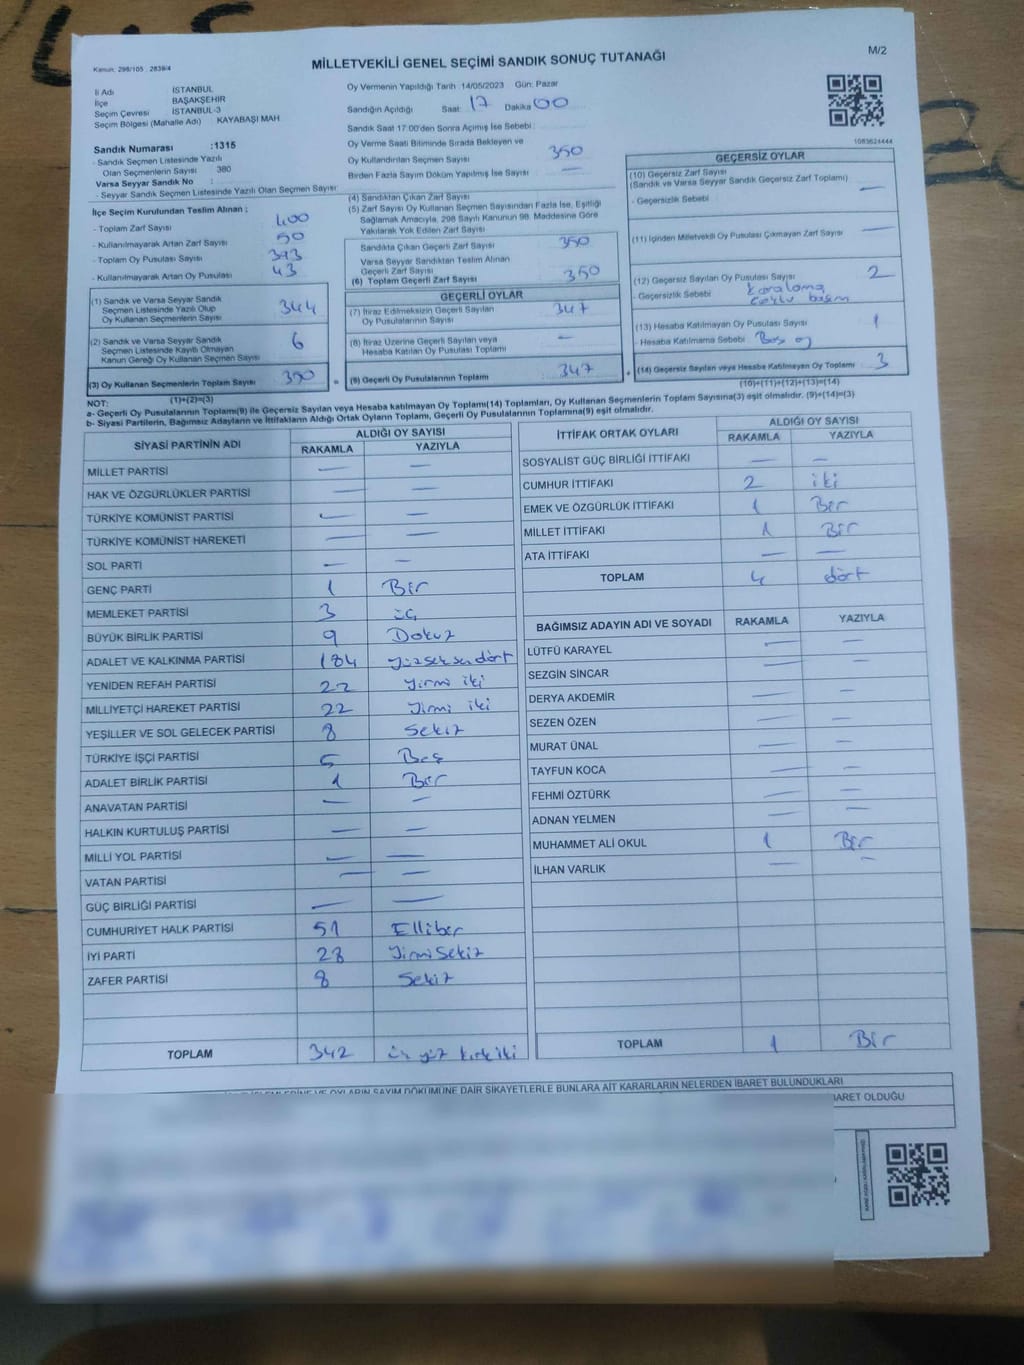 M/2
Kanun: 298/105 , 2839/4
MİLLETVEKİLİ GENEL SEÇİMİ SANDIK SONUÇ TUTANAĞI
İl Adı İSTANBUL
İlçe BAŞAKŞEHİR
Seçim Çevresi İSTANBUL-3
Seçim Bölgesi (Mahalle Adı) KAYABAŞI MAH
Sandık Numarası :1315
- Sandık Seçmen Listesinde Yazılı
Olan Seçmenlerin Sayısı 380
Varsa Seyyar Sandık No :
- Seyyar Sandık Seçmen Listesinde Yazılı Olan Seçmen Sayısı
Oy Vermenin Yapıldığı Tarih :14/05/2023 Gün: Pazar
Sandığın Açıldığı Saat: 17 Dakika 00
Sandık Saat 17:00'den Sonra Açımış İse Sebebi :
Oy Verme Saati Bitiminde Sırada Bekleyen ve
Oy Kullandırılan Seçmen Sayısı 350
Birden Fazla Sayım Döküm Yapılmış İse Sayısı —
İlçe Seçim Kurulundan Teslim Alınan :
- Toplam Zarf Sayısı 400
- Kullanılmayarak Artan Zarf Sayısı 50
- Toplam Oy Pusulası Sayısı 393
- Kullanılmayarak Artan Oy Pusulası 43
(1) Sandık ve Varsa Seyyar Sandık
Seçmen Listesinde Yazılı Olup
Oy Kullanan Seçmenlerin Sayısı 344
(2) Sandık ve Varsa Seyyar Sandık
Seçmen Listesinde Kayıtlı Olmayan
Kanun Gereği Oy Kullanan Seçmen Sayısı 6
(3) Oy Kullanan Seçmenlerin Toplam Sayısı 350
(1)+(2)=(3)
(4) Sandıktan Çıkan Zarf Sayısı
(5) Zarf Sayısı Oy Kullanan Seçmen Sayısından Fazla İse, Eşitliği
Sağlamak Amacıyla, 298 Sayılı Kanunun 98. Maddesine Göre
Yakılarak Yok Edilen Zarf Sayısı
Sandıkta Çıkan Geçerli Zarf Sayısı 350
Varsa Seyyar Sandıktan Teslim Alınan
Geçerli Zarf Sayısı
(6) Toplam Geçerli Zarf Sayısı 350
GEÇERLİ OYLAR
(7) İtiraz Edilmeksizin Geçerli Sayılan
Oy Pusulalarının Sayısı 347
(8) İtiraz Üzerine Geçerli Sayılan veya
Hesaba Katılan Oy Pusulası Toplamı —
(9) Geçerli Oy Pusulalarının Toplamı 347
1083624444
GEÇERSİZ OYLAR
(10) Geçersiz Zarf Sayısı
(Sandık ve Varsa Seyyar Sandık Geçersiz Zarf Toplamı) —
- Geçersizlik Sebebi
(11) İçinden Milletvekili Oy Pusulası Çıkmayan Zarf Sayısı —
(12) Geçersiz Sayılan Oy Pusulası Sayısı 2
- Geçersizlik Sebebi Karalama,
(13) Hesaba Katılmayan Oy Pusulası Sayısı 1
- Hesaba Katılmama Sebebi Boş oy
(14) Geçersiz Sayılan veya Hesaba Katılmayan Oy Toplamı 3
(10)+(11)+(12)+(13)=(14)
NOT:
a- Geçerli Oy Pusulasının Toplamı(9) ile Geçersiz Sayılan veya Hesaba katılmayan Oy Toplamı(14) Toplamları, Oy Kullanan Seçmenlerin Toplam Sayısına(3) eşit olmalıdır. (9)+(14)=(3)
b- Siyasi Partilerin, Bağımsız Adayların ve İttifakların Aldığı Ortak Oyların Toplamı, Geçerli Oy Pusulalarının Toplamına(9) eşit olmalıdır.
SİYASİ PARTİNİN ADI ALDIĞI OY SAYISI
RAKAMLA YAZIYLA
MİLLET PARTİSİ — —
HAK VE ÖZGÜRLÜKLER PARTİSİ — —
TÜRKİYE KOMÜNİST PARTİSİ — —
TÜRKİYE KOMÜNİST HAREKETİ — —
SOL PARTİ — —
GENÇ PARTİ 1 Bir
MEMLEKET PARTİSİ 3 üç
BÜYÜK BİRLİK PARTİSİ 9 Dokuz
ADALET VE KALKINMA PARTİSİ 184 yüzseksendört
YENİDEN REFAH PARTİSİ 22 Yirmi iki
MİLLİYETÇİ HAREKET PARTİSİ 22 Yirmi iki
YEŞİLLER VE SOL GELECEK PARTİSİ 8 Sekiz
TÜRKİYE İŞÇİ PARTİSİ 5 Beş
ADALET BİRLİK PARTİSİ 1 Bir
ANAVATAN PARTİSİ — —
HALKIN KURTULUŞ PARTİSİ — —
MİLLİ YOL PARTİSİ — —
VATAN PARTİSİ — —
GÜÇ BİRLİĞİ PARTİSİ — —
CUMHURİYET HALK PARTİSİ 51 Ellibir
İYİ PARTİ 28 YirmiSekiz
ZAFER PARTİSİ 8 Sekiz
TOPLAM 342 üç yüz kırk iki
İTTİFAK ORTAK OYLARI ALDIĞI OY SAYISI
RAKAMLA YAZIYLA
SOSYALİST GÜÇ BİRLİĞİ İTTİFAKI — —
CUMHUR İTTİFAKI 2 iki
EMEK VE ÖZGÜRLÜK İTTİFAKI 1 Bir
MİLLET İTTİFAKI 1 Bir
ATA İTTİFAKI — —
TOPLAM 4 dört
BAĞIMSIZ ADAYIN ADI VE SOYADI RAKAMLA YAZIYLA
LÜTFÜ KARAYEL — —
SEZGİN SİNCAR — —
DERYA AKDEMİR — —
SEZEN ÖZEN — —
MURAT ÜNAL — —
TAYFUN KOCA — —
FEHMİ ÖZTÜRK — —
ADNAN YELMEN — —
MUHAMMET ALİ OKUL 1 Bir
İLHAN VARLIK — —
TOPLAM 1 Bir
OYLARIN SAYIM DÖKÜMÜNE DAİR ŞİKAYETLERLE BUNLARA AİT KARARLARIN NELERDEN İBARET BULUNDUKLARI
OLDUĞU